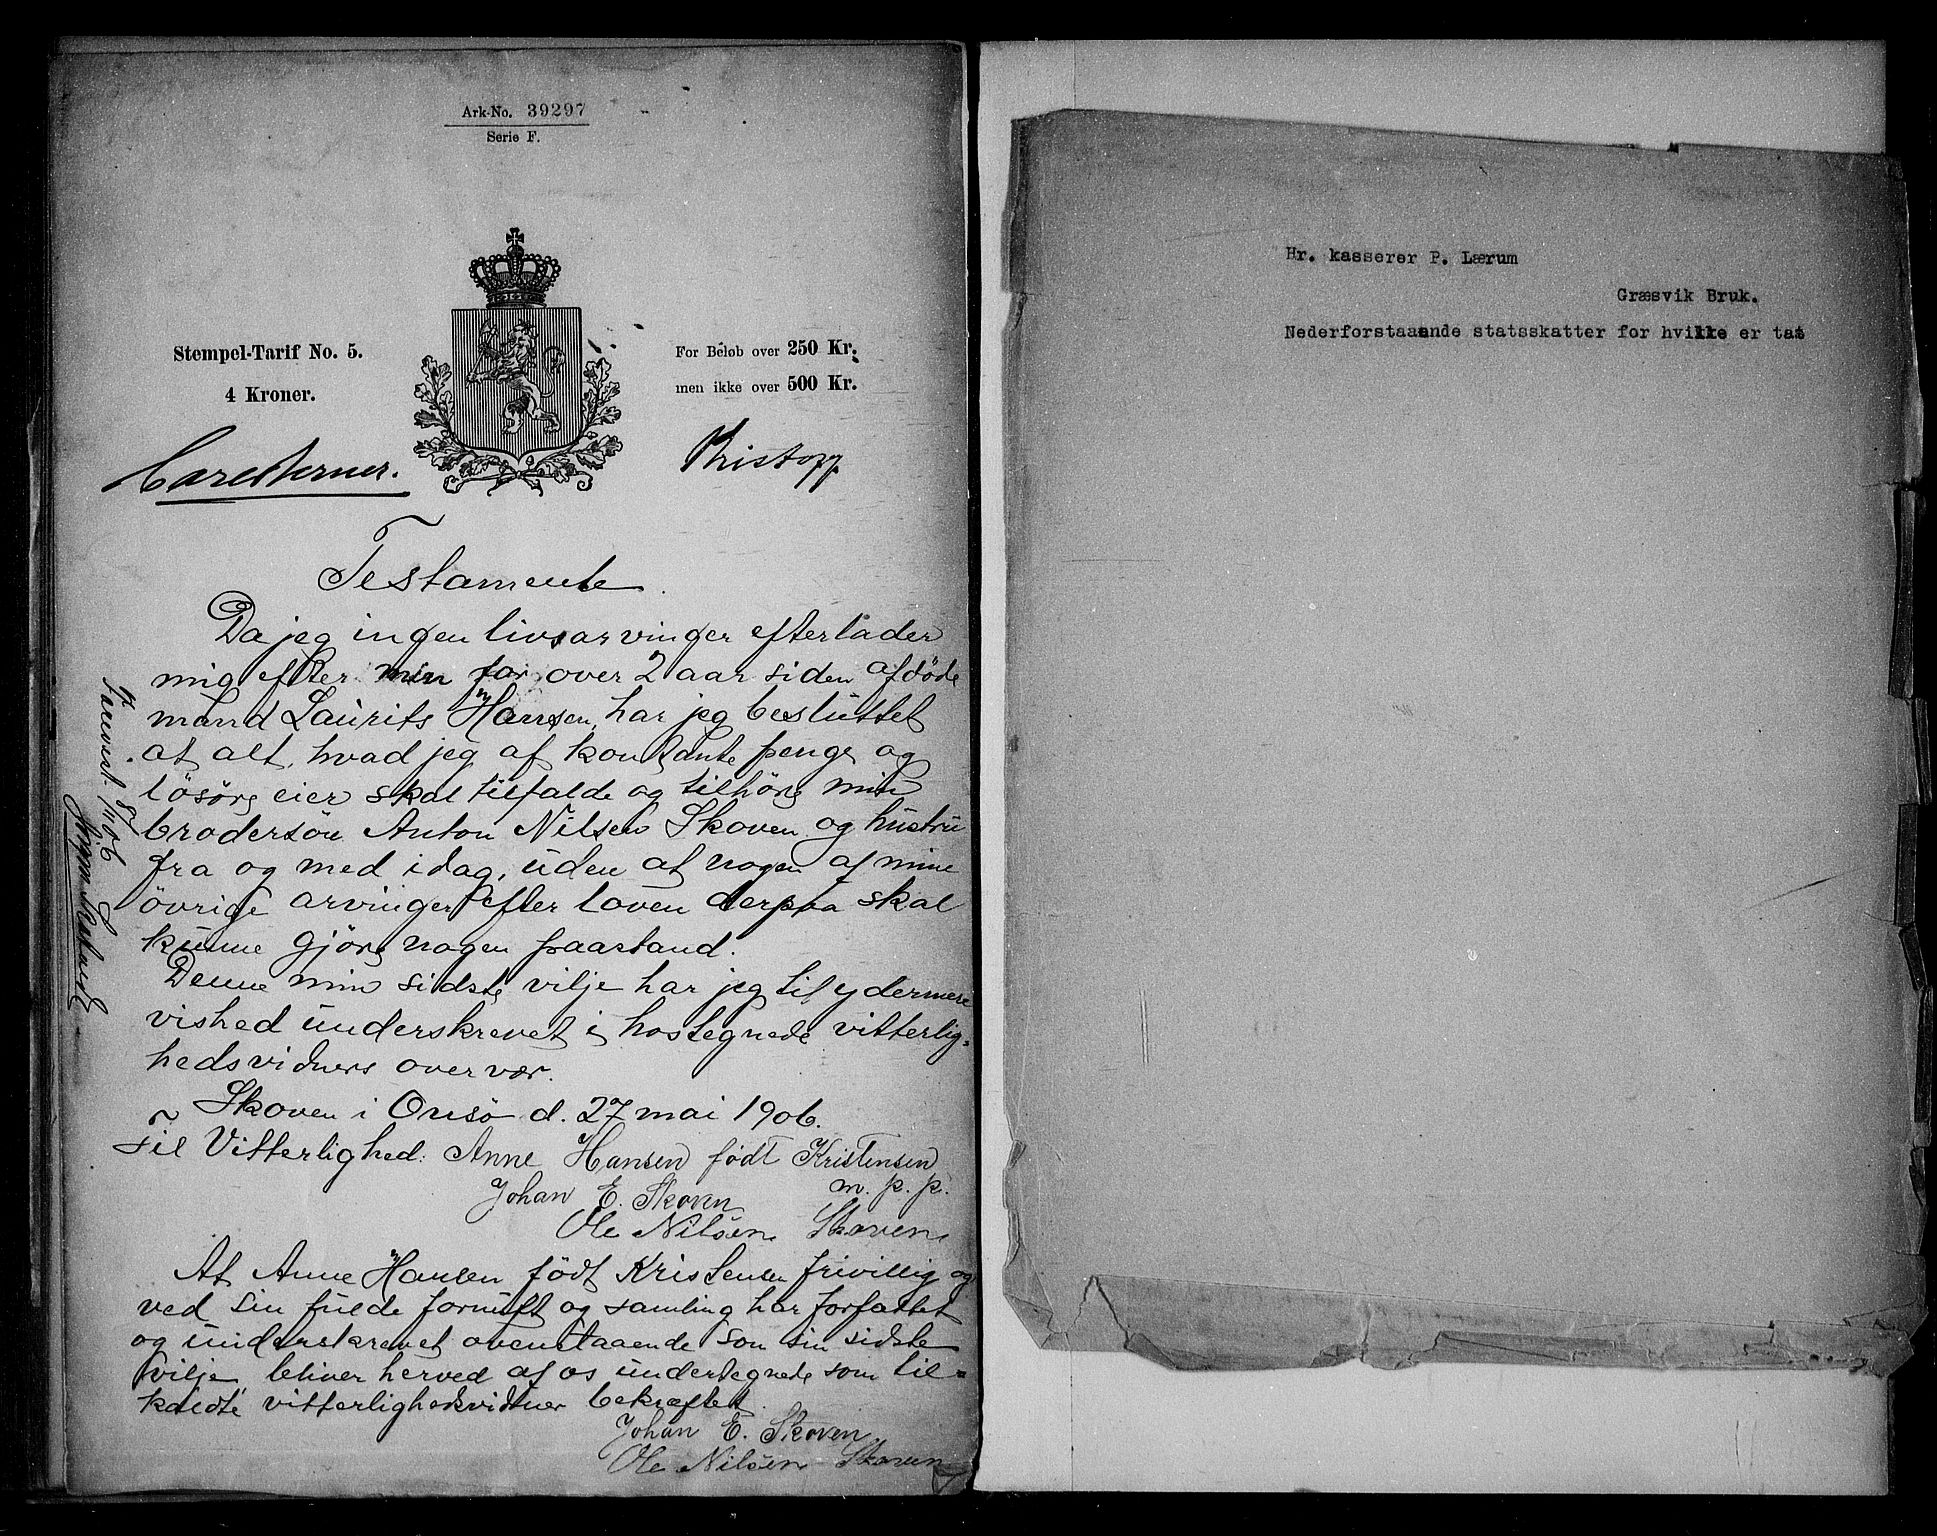 Ark-No. 39297
Serie F.
Stempel-Tarif No. 5.
4 Kroner.
For Beløb over 250 Kr.
men ikke over 500 Kr.
Testamente.
Da jeg ingen livsarvinger efterlader
mig efter min for over 2 aar siden afdöde
mand Laurits Hansen, har jeg besluttet
at alt, hvad jeg af kontante penge og
lösöre eier skal tilfalde og tilhöre min
brodersön Anton Nilsen Skoven og hustru
fra og med idag, uden at nogen af mine
övrige arvinger efter loven derpaa skal
kunne gjöre nogen paastand.
Denne min sidste vilje har jeg til ydermere
vished underskrevet i hostegnede vitterlig=
hedsvidners overvær.
Skoven i Onsö d. 27 mai 1906.
Til Vitterlighed: Anne Hansen födt Kristensen
m. p. p.
Johan E. Skoven
Ole Nilsen Skoven
At Anne Hansen födt Kristensen frivillig og
ved sin fulde fornuft og samling har forfattet
og underskrevet ovenstaaende som sin sidste
vilje bliver herved af os undertegnede som til=
kaldte vitterlighedsvidner bekræftet.
Johan E. Skoven
Ole Nilsen Skoven
Hr. kasserer P. Lærum
Græsvik Bruk.
Nederforstaaende statsskatter for hvilke er tat